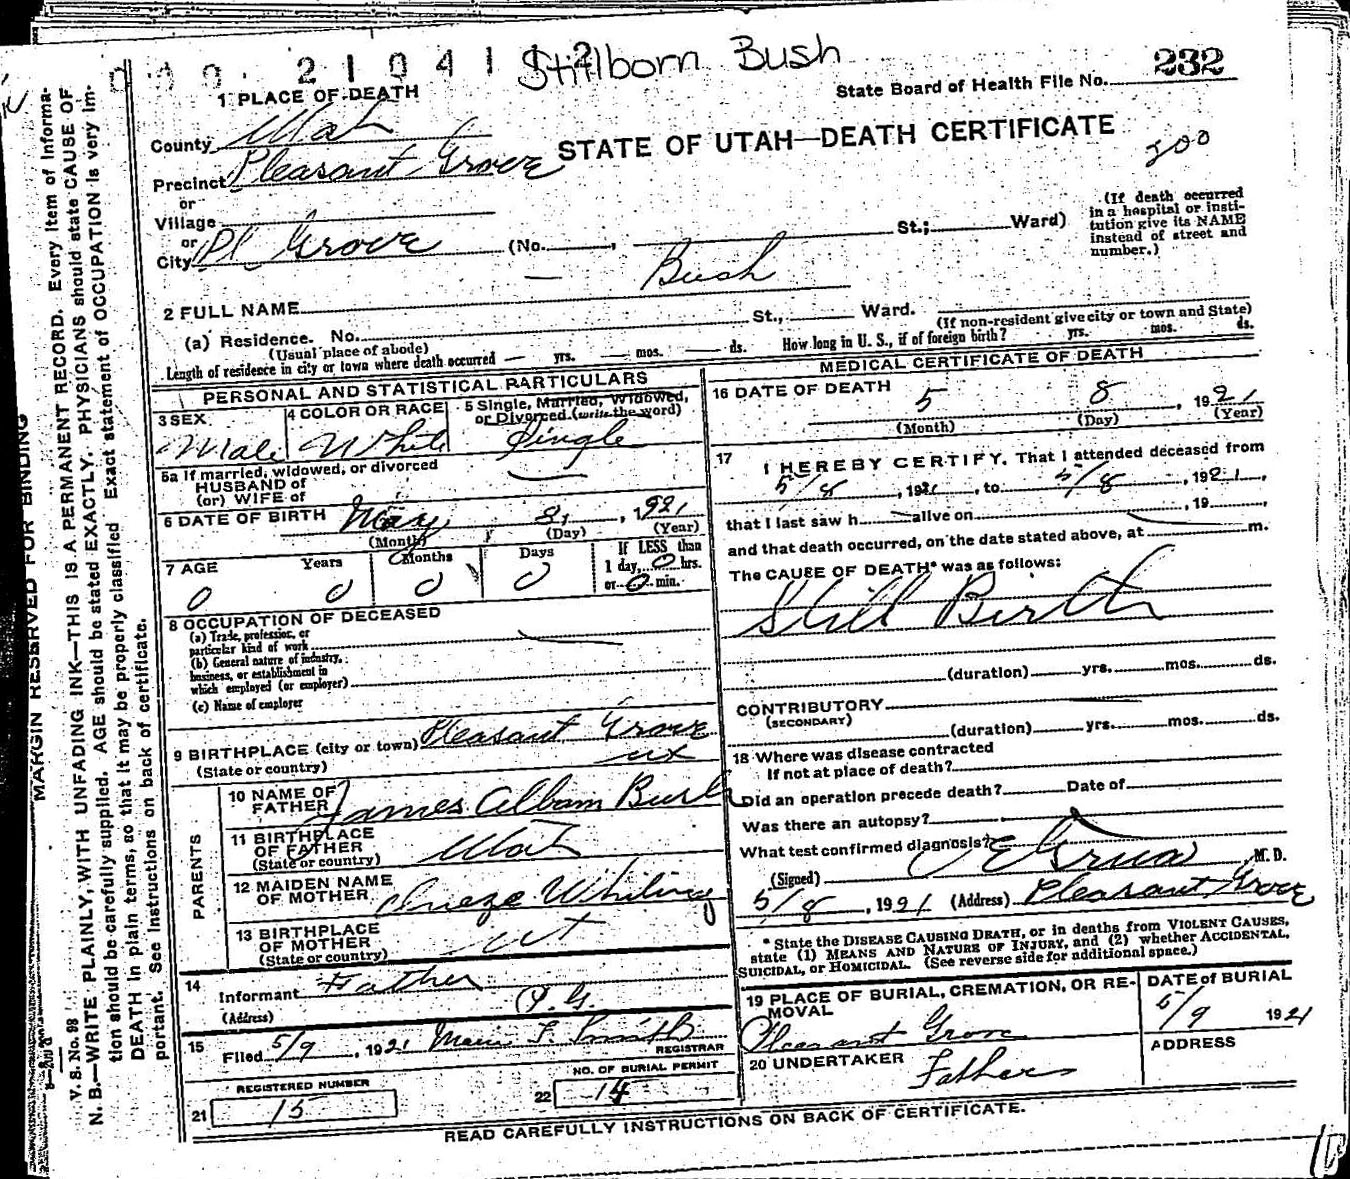 210411 2 Stillborn Bush
State Board of Health File No. 232
1 PLACE OF DEATH
County Utah
STATE OF UTAH—DEATH CERTIFICATE
200
Precinct Pleasant Grove
or
Village
or
City Pl Grove (No. , St.; Ward)
(If death occurred in a hospital or institution give its NAME instead of street and number.)
2 FULL NAME — Bush
(a) Residence. No. St., Ward.
(Usual place of abode) (If non-resident give city or town and State)
Length of residence in city or town where death occurred — yrs. — mos. — ds. How long in U. S., if of foreign birth? yrs. mos. ds.
PERSONAL AND STATISTICAL PARTICULARS
3 SEX 4 COLOR OR RACE 5 Single, Married, Widowed, or Divorced (write the word)
Male White Single
5a If married, widowed, or divorced
HUSBAND of
(or) WIFE of
6 DATE OF BIRTH May 8, 1921
(Month) (Day) (Year)
7 AGE Years Months Days If LESS than
1 day, 0 hrs.
0 0 0 0 or 0 min.
8 OCCUPATION OF DECEASED
(a) Trade, profession, or
particular kind of work
(b) General nature of industry,
business, or establishment in
which employed (or employer)
(c) Name of employer
9 BIRTHPLACE (city or town) Pleasant Grove
(State or country) Ut
PARENTS
10 NAME OF
FATHER James Albam Bush
11 BIRTHPLACE
OF FATHER
(State or country) Utah
12 MAIDEN NAME
OF MOTHER Whiting
13 BIRTHPLACE
OF MOTHER
(State or country) Ut
14
Informant Father
(Address) P. G.
15
Filed 5/9, 1921
REGISTRAR
REGISTERED NUMBER
21 15
NO. OF BURIAL PERMIT
22 14
MEDICAL CERTIFICATE OF DEATH
16 DATE OF DEATH 5 8, 1921
(Month) (Day) (Year)
17
I HEREBY CERTIFY, That I attended deceased from
5/8, 1921, to 5/8, 1921,
that I last saw h — alive on , 19 ,
and that death occurred, on the date stated above, at m.
The CAUSE OF DEATH* was as follows:
Still Birth
(duration) yrs. mos. ds.
CONTRIBUTORY
(SECONDARY)
(duration) yrs. mos. ds.
18 Where was disease contracted
If not at place of death?
Did an operation precede death? Date of
Was there an autopsy?
What test confirmed diagnosis?
(Signed) Grua M. D.
5/8, 1921 (Address) Pleasant Grove
* State the DISEASE CAUSING DEATH, or in deaths from VIOLENT CAUSES,
state (1) MEANS AND NATURE OF INJURY, and (2) whether ACCIDENTAL,
SUICIDAL, or HOMICIDAL. (See reverse side for additional space.)
19 PLACE OF BURIAL, CREMATION, OR RE-
MOVAL
Pleasant Grove
DATE of BURIAL
5/9 1921
20 UNDERTAKER
Father
ADDRESS
READ CAREFULLY INSTRUCTIONS ON BACK OF CERTIFICATE.
MARGIN RESERVED FOR BINDING
V. S. No. 98
N. B.—WRITE PLAINLY, WITH UNFADING INK—THIS IS A PERMANENT RECORD. Every item of Informa-
tion should be carefully supplied. AGE should be stated EXACTLY. PHYSICIANS should state CAUSE OF
DEATH in plain terms, so that it may be properly classified. Exact statement of OCCUPATION is very im-
portant. See Instructions on back of certificate.